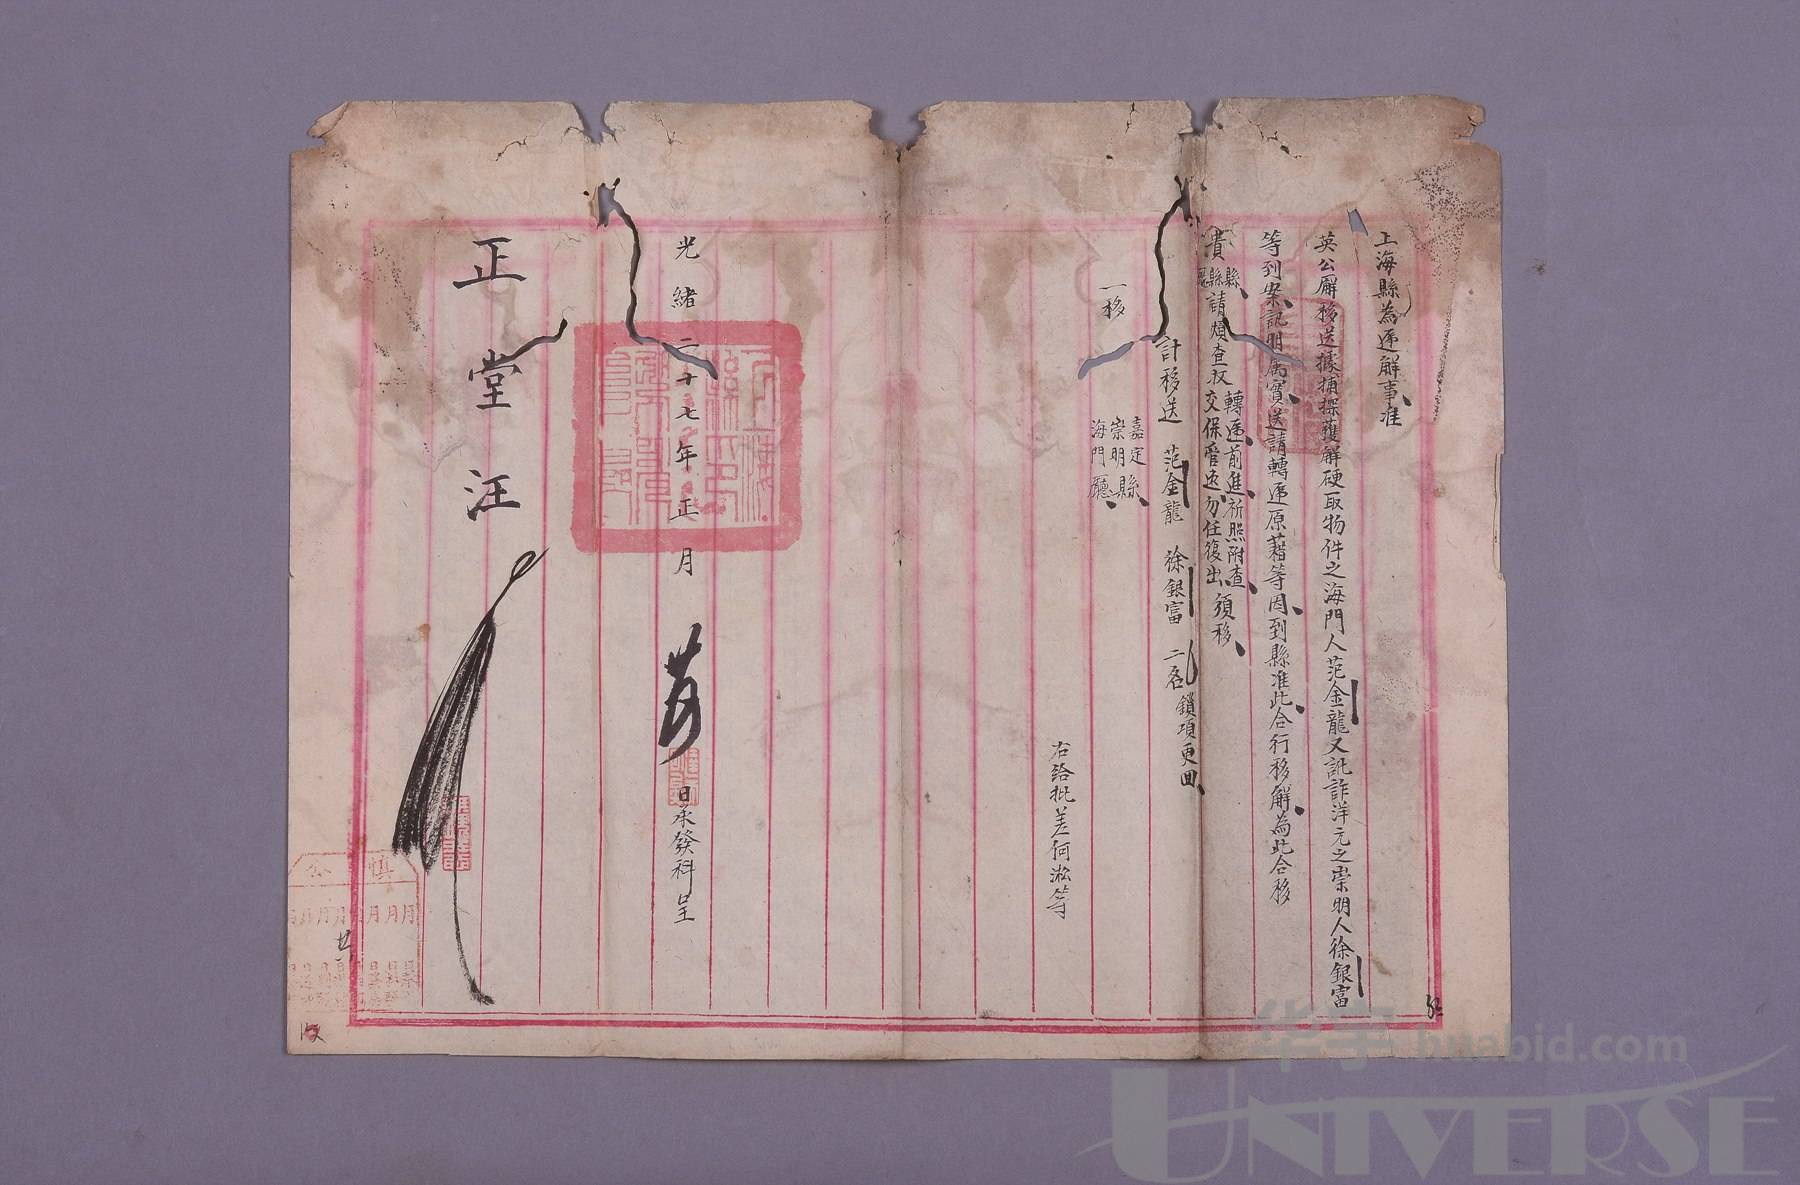 上海縣為遞解事准
英公廨移送據捕探獲解硬取物件之海門人范金龍又訛詐洋元之崇明人徐銀富
等到案訊明屬實送請轉遞原藉等因到縣准此合行移解為此合移
貴縣縣廳請煩查收轉遞前進祈照附查交保管速勿任復出須移
計移送 范金龍 徐銀富 二名鎖項更回
一移 嘉定崇明縣海門廳
右給批差何淞等
光緒二十七年正月 日承發科呈
正堂汪
慎公
华宇 huabid.com
UNIVERSE